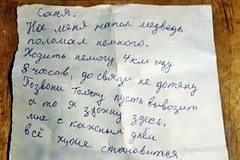 Саня.
На меня напал медведь
поломал немного.
Ходить немогу 4 км иду
8 часов, до связи не дотяну
Позвони Толяну пусть вывозит
а то я здохну здесь.
мне с каждым днём
всё хуже становится